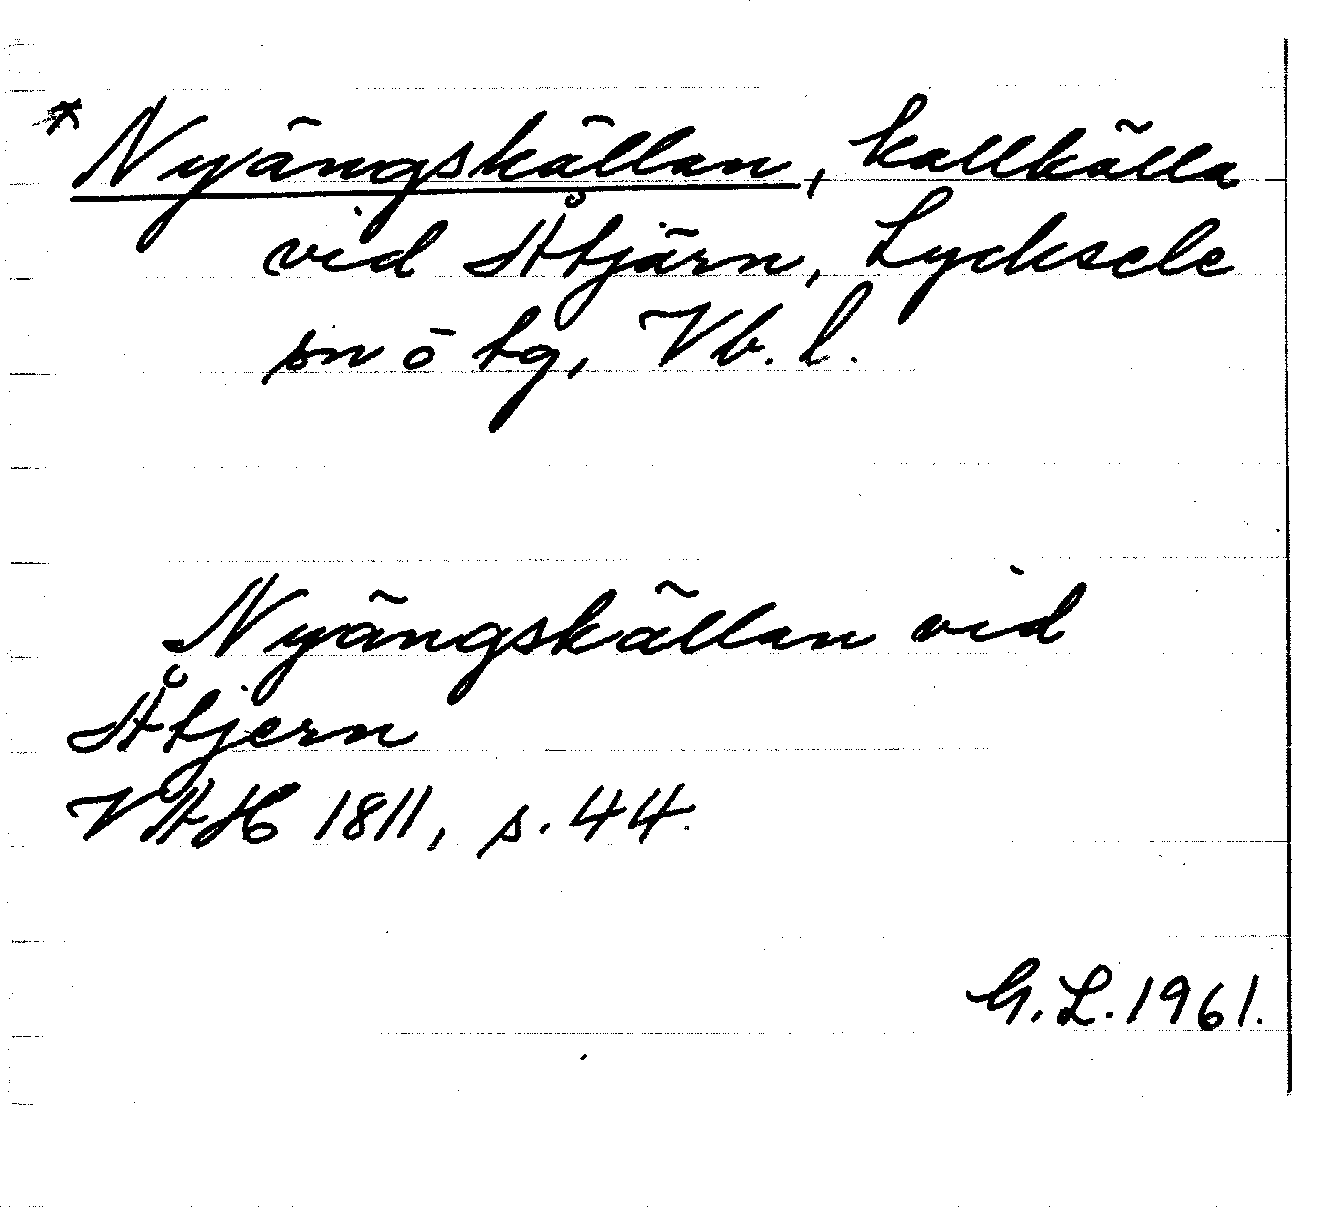 * Nyängskällan, kallkälla
vid Åtjärn, Lycksele
sn ö tg, Vb. l.
Nyängskällan vid
Åtjern
VAH 1811, s. 44.
G. L. 1961.